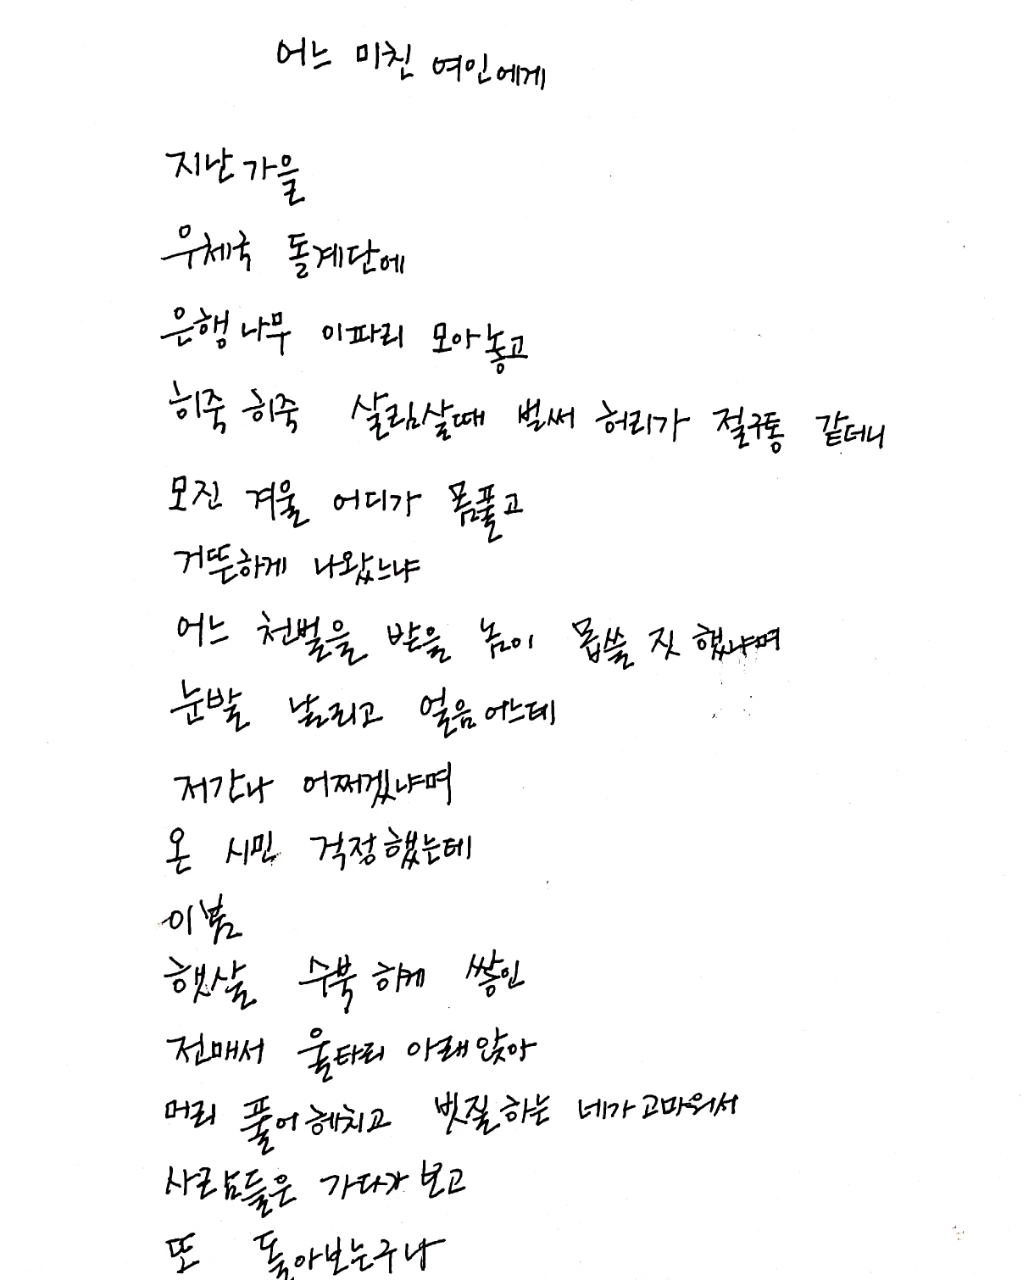 어느 미친 여인에게
지난 가을
우체국 돌계단에
은행나무 이파리 모아놓고
히죽 히죽 살림살때 벌써 허리가 절구통 같더니
모진 겨울 어디가 몸풀고
거뜬하게 나왔느냐
어느 천벌을 받을 놈이 몹쓸 짓 했냐며
눈발 날리고 얼음 어는데
저간나 어쩌겠냐며
온 시민 걱정했는데
이봄
햇살 수북하게 쌓인
전매서 울타리 아래 앉아
머리 풀어헤치고 빗질하는 네가 고마워서
사람들은 가다가 보고
또 돌아보는구나